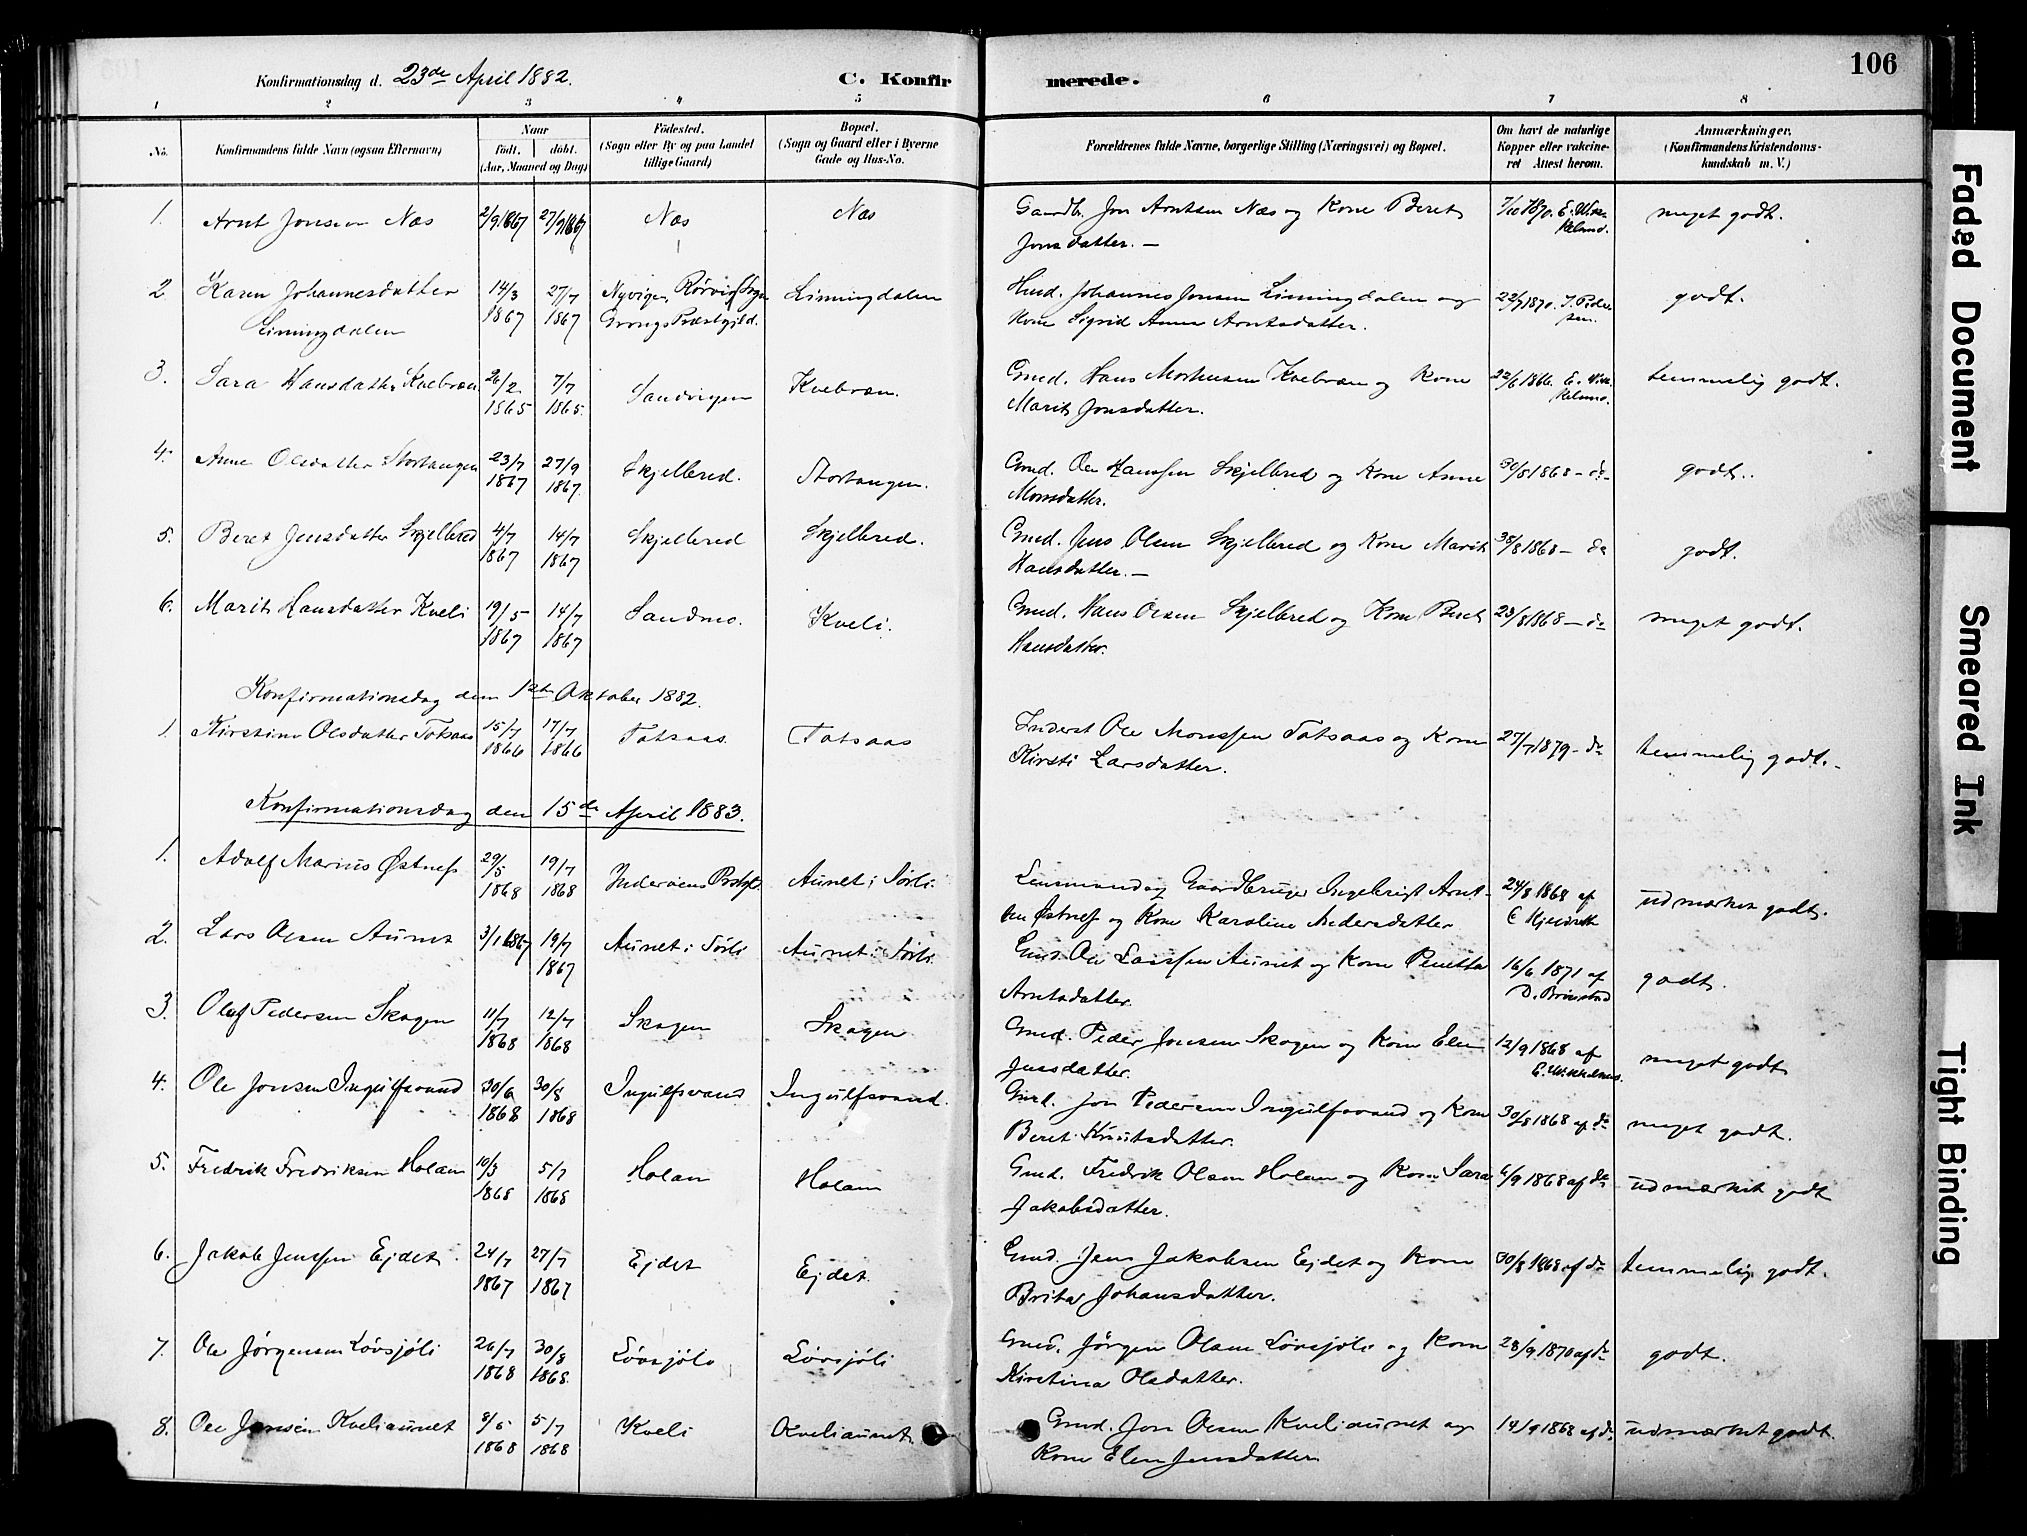 106
Konfirmationsdag d. 23de April 1882. C. Konfirmerede.
1 2 3 4 5 6 7 8
No. Konfirmandens fulde Navn (ogsaa Efternavn). Naar født. døbt. (Aar, Maaned og Dag) Fødested. (Sogn eller By og paa Landet tillige Gaard) Bopæl. (Sogn og Gaard eller i Byerne Gade og Hus-No. Forældrenes fulde Navne, borgerlige Stilling (Næringsvei) og Bopæl. Om havt de naturlige Kopper eller vakcineret Attest herom. Anmærkninger. (Konfirmandens Kristendomskundskab m. V.)
1. Arnt Jonsen Næs 2/9 1867 27/9 1867 Næs Næs Gaardb. Jon Arntsen Næs og Kone Beret 7/10 1870. meget godt.
Jonsdatter. —
2. Karen Johannesdatter 14/3 1867 27/7 1867 Nyvigen, Rørvig Sogn Linningdalen Hmd. Johannes Jonsen Linningdalen og 22/7 1870. godt.
Linningdalen Grongs Præstgjld. Kone Sigrid Anna Arntsdatter.
3. Sara Hansdatter Kvebræn 26/2 1865 7/7 1865. Sandvigen Kvebræn. Gmd. Hans Mortensen Kvebræn og Kone 22/6 1866. temmelig godt.
Marit Jonsdatter.
4. Anne Olsdatter Stortangen 23/7 1867 27/9 1867. Skjelbred. Stortangen. Gmd. Ole Hanssen Skjelbred og Kone Anne 30/8 1868 — do — godt.
Monsdatter.
5. Beret Jensdatter Skjelbred 4/7 1867 14/7 1867 Skjelbred Skjelbred. Gmd. Jens Olsen Skjelbred og Kone Marit 30/8 1868 — do godt.
Hansdatter. —
6. Marit Hansdatter Kveli 19/5 1867 14/7 1867 Sandmo. Kveli. Gmd. Hans Olsen Skjelbred og Kone Beret 23/8 1868 — do meget godt.
Hansdatter.
Konfirmationsdag den 1ste Oktober 1882.
1. Kirstine Olsdatter Totsaas 15/7 1866 17/7 1866 Totsaas. Totsaas Inderst Ole Monssen Totsaas og Kone 27/7 1879 - do temmelig godt. -
Kirsti Larsdatter.
Konfirmationsdag den 15de April 1883.
1. Adolf Marius Østnes 29/5 1868 19/7 1868 Inderøens Prstgjld Aunet i Sørli. Lensmand og Gaardbruger Ingebrigt Arnt- 24/8 1868 af udmærket godt.
sen Østnes og Kone Karoline Pedersdatter
2. Lars Olsen Aunet 3/1 1867 19/7 1867 Aunet i Sørli Aunet i Sørli. Gmd. Ole Larssen Aunet og Kone 16/6 1871 af godt.
Arntsdatter.
3. Oluf Pedersen Skogen 11/7 1868 12/7 1868 Skogen Skogen Gmd. Peder Jonsen Skogen og Kone Elen 12/9 1868 af meget godt
Jensdatter.
4. Ole Jonsen Ingulfsvand 30/6 1868 30/8 1868 Ingulfsvand Ingulfsvand. Gmd. Jon Pedersen Ingulfsvand og Kone 30/8 1868 af do meget godt.
Beret Knutsdatter.
5. Fredrik Fredriksen Holan 10/3 1868 5/7 1868 Holan Holan Gmd. Fredrik Olsen Holan og Kone Sara 6/9 1868 af do udmærket godt
Jakobsdatter.
6. Jakob Jenssen Ejdet 24/7 1867 27/7 1867 Ejdet Ejdet. Gmd. Jens Jakobsen Ejdet og Kone 30/8 1868 af do temmelig godt.
Brita Johansdatter.
7. Ole Jørgensen Løvsjøli 26/7 1868 30/8 1868. Løvsjøli Løvsjøli Gmd. Jørgen Olsen Løvsjøli og Kone 28/9 1870 af do godt.
Kirstina Olsdatter.
8. Ole Jonsen Kveliaunet 8/6 1868 5/7 1868 Kveli Kveliaunet. Gmd. Jon Olsen Kveliaunet og 14/9 1868 af do udmærket godt.
Kone Elen Jensdatter
Faded Document
Smeared Ink
Tight Binding